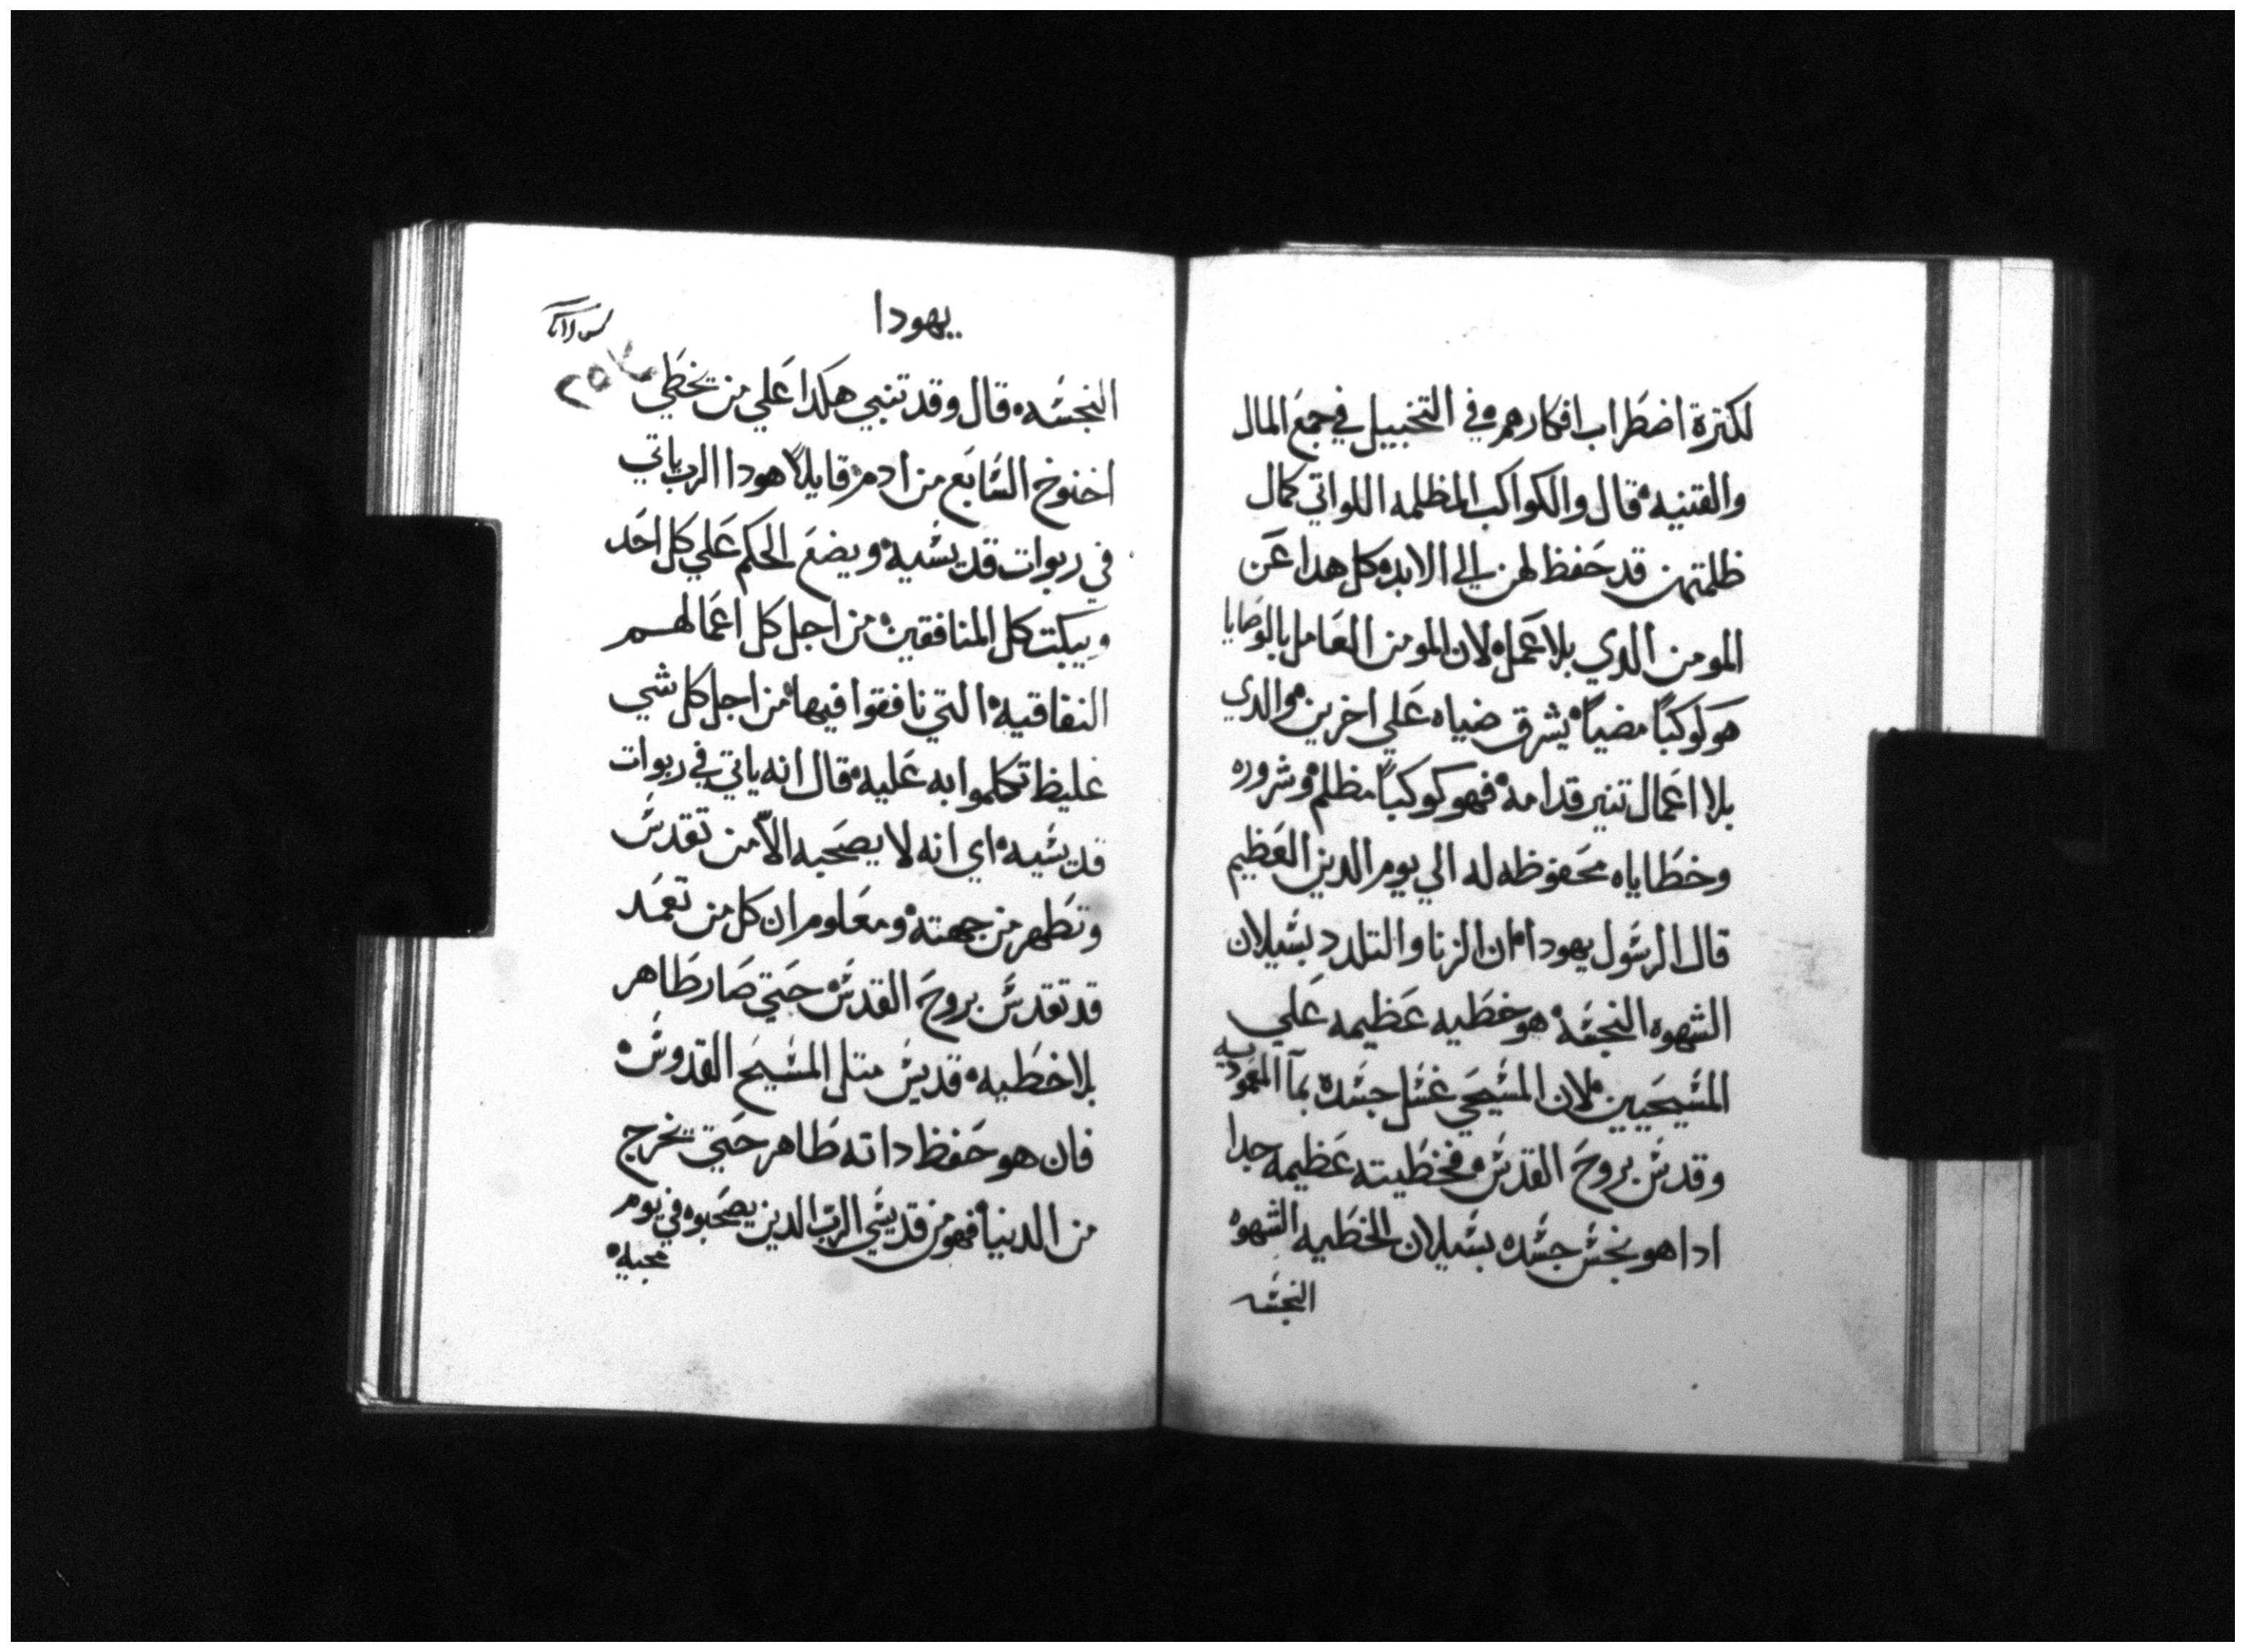 لكترة اضطراب افكارهم في التخييل في جمع المال
والقتنيه قال والكواكب المظلمه اللواتي كمال
ظلمتهن قد حفظ لهن الي الابد كل هدا عن
المومن الدي بلا عمل لان المومن العامل بالوصايا
هو كوكبًا مضيًا يشرق ضياه علي اخرين والدي
بلا اعمال تنير قدامه فهو كوكبًا مظلم وشروره
وخطاياه محفوظه له الي يوم الدين العظيم
قال الرسول يهودا ان الزنا والتلدد بسيلان
الشهوه النجسه هو خطيه عظيمه علي
المسيحيين لان المسيحي غسل جسده بمآ المعموديه
وقدس بروح القدس فخطيته عظيمه جدا
ادا هو نجس جسده بسيلان الخطيه الشهوه
النجسه
يهودا
٢٥٧
النجسه قال وقد تنبي هكدا علي من يخطي
اخنوخ السابع من ادم قايلاً هودا الرب ياتي
في ربوات قديسيه ويضع الحكم علي كل احد
ويبكت كل المنافقين من اجل كل اعمالهم
النفاقيه التي نافقوا فيها من اجل كل شي
غليظ تكلموا به عليه قال انه ياتي في ربوات
قديسيه اي انه لا يصحبه الاّ من تقدس
وتطهر من جهته ومعلوم ان كل من تعمد
قد تقدس بروح القدس حتي صار طاهر
بلا خطيه قديس متل المسيح القدوس
فان هو حفظ داته طاهر حتي يخرج
من الدنيا فهو من قديسي الرب الدين يصحبوه في يوم
مجيه